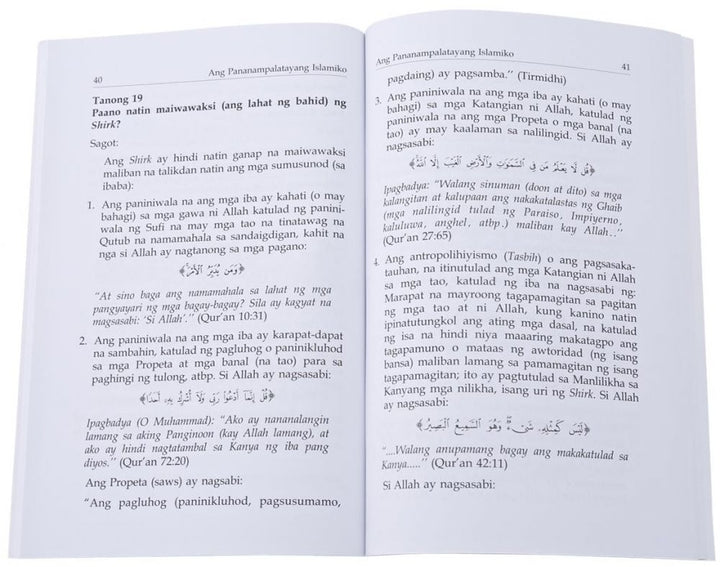 40
Ang Pananampalatayang Islamiko
Tanong 19
Paano natin maiwawaksi (ang lahat ng bahid) ng
Shirk?
Sagot:
Ang Shirk ay hindi natin ganap na maiwawaksi
maliban na talikdan natin ang mga sumusunod (sa
ibaba):
1. Ang paniniwala na ang mga iba ay kahati (o may
bahagi) sa mga gawa ni Allah katulad ng panini-
wala ng Sufi na may mga tao na tinatawag na
Qutub na namamahala sa sandaigdigan, kahit na
nga si Allah ay nagtanong sa mga pagano:
﴿وَمَن يُدَبِّرُ الْأَمْرَ﴾
"At sino baga ang namamahala sa lahat ng mga
pangyayari ng mga bagay-bagay? Sila ay kagyat na
magsasabi: 'Si Allah'." (Qur'an 10:31)
2. Ang paniniwala na ang mga iba ay karapat-dapat
na sambahin, katulad ng pagluhog o paninikluhod
sa mga Propeta at mga banal (na tao) para sa
paghingi ng tulong, atbp. Si Allah ay nagsasabi:
﴿قُلْ إِنَّمَا أَدْعُوا رَبِّي وَلَا أُشْرِكُ بِهِ أَحَدًا﴾
Ipagbadya (O Muhammad): "Ako ay nananalangin
lamang sa aking Panginoon (kay Allah lamang), at
ako ay hindi nagtatambal sa Kanya ng iba pang
diyos." (Qur'an 72:20)
Ang Propeta (saws) ay nagsabi:
"Ang pagluhog (paninikluhod, pagsusumamo,
Ang Pananampalatayang Islamiko
41
pagdaing) ay pagsamba." (Tirmidhi)
3. Ang paniniwala na ang mga iba ay kahati (o may
bahagi) sa mga Katangian ni Allah, katulad ng
paniniwala na ang mga Propeta o mga banal (na
tao) ay may kaalaman sa nalilingid. Si Allah ay
nagsasabi:
﴿قُل لَّا يَعْلَمُ مَن فِي السَّمَوَاتِ وَالْأَرْضِ الْغَيْبَ إِلَّا اللَّهُ﴾
Ipagbadya: "Walang sinuman (doon at dito) sa mga
kalangitan at kalupaan ang nakakatalastas ng Ghaib
(mga nalilingid tulad ng Paraiso, Impiyerno,
kaluluwa, anghel, atbp.) maliban kay Allah.."
(Qur'an 27:65)
4. Ang antropolihiyismo (Tasbih) o ang pagsasaka-
tauhan, na itinutulad ang mga Katangian ni Allah
sa mga tao, katulad ng iba na nagsasabi ng:
Marapat na mayroong tagapamagitan sa pagitan
ng mga tao at ni Allah, kung kanino natin
ipinatutungkol ang ating mga dasal, na katulad
ng isa na hindi niya maaaring makatagpo ang
tagapamuno o mataas ng awtoridad (ng isang
bansa) maliban lamang sa pamamagitan ng isang
tagapamagitan; ito ay pagtutulad sa Manlilikha sa
Kanyang mga nilikha, isang uri ng Shirk. Si Allah
ay nagsasabi:
﴿لَيْسَ كَمِثْلِهِ شَيْءٌ وَهُوَ السَّمِيعُ الْبَصِيرُ﴾
"....Walang anupamang bagay ang makakatulad sa
Kanya....." (Qur'an 42:11)
Si Allah ay nagsasabi: